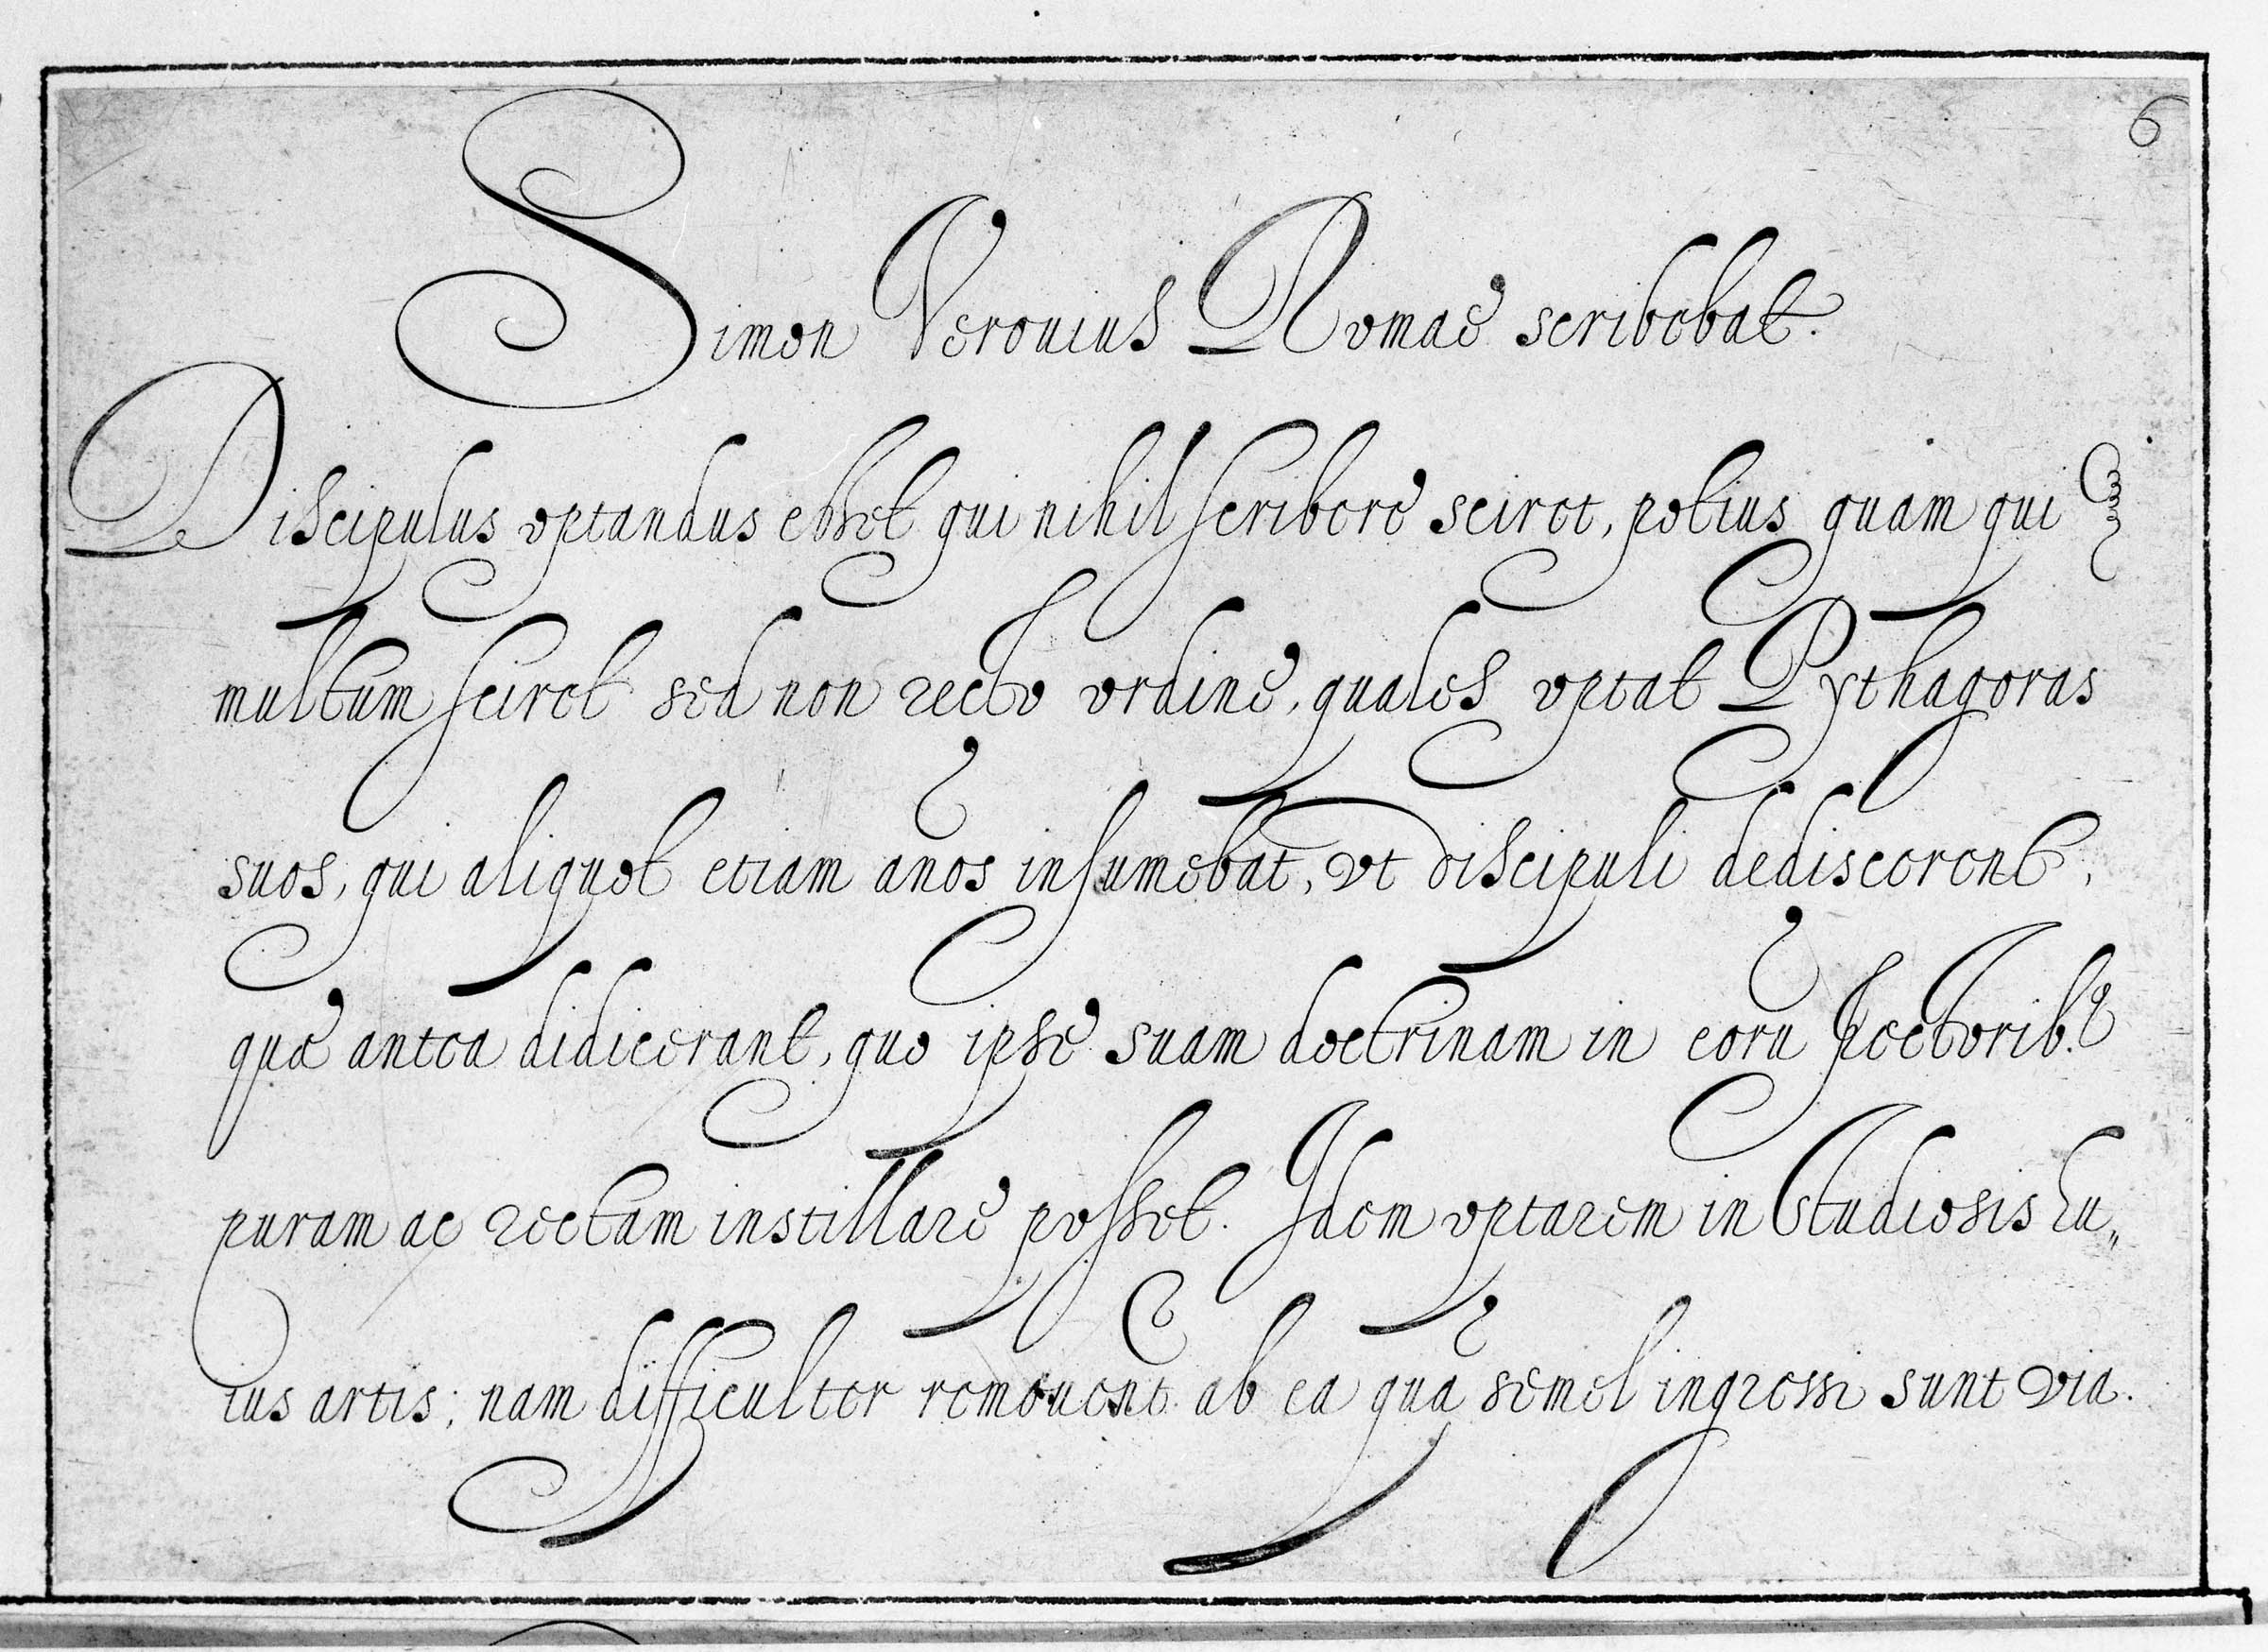 6
Simon Verouius Romae scribebat.
Discipulus optandus esset qui nihil scribere sciret, potius quam qui
multum sciret sed non recto ordine, quales optat Pythagoras
suos, qui aliquot etiam anos insumebat, vt discipuli dediscerent,
quae antea didicerant, quo ipse suam doctrinam in eoru pectorib.9
puram ac rectam instillare posset. Idem optarem in studiosis hu„
ius artis; nam difficulter remouent. ab ea qua semel ingressi sunt via.